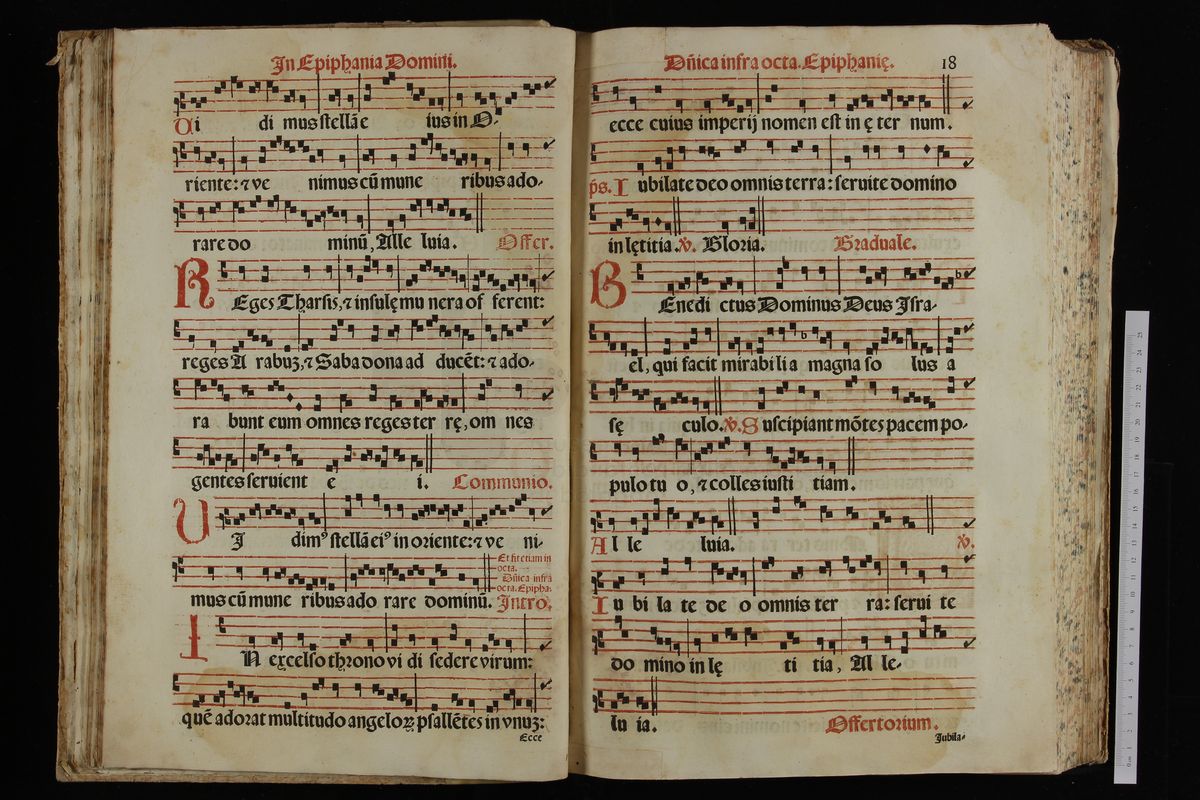 In Epiphania Domini.
Ui di mus stellã e ius in O-
riente: ⁊ ve nimus cũ mune ribus ado-
rare do minũ, Alle luia. Offer.
REges Tharsis, ⁊ insulę mu nera of ferent:
reges A rabuʒ, ⁊ Saba dona ad ducẽt: ⁊ ado-
ra bunt eum omnes reges ter rę, om nes
gentes seruient e i. Communio.
UIdimꝰ stellã eiꝰ in oriente: ⁊ ve ni-
Et sit etiam in
octa.
Dñica infrà
octa. Epipha.
mus cũ mune ribus ado rare dominũ. Intro.
IN excelso throno vi di sedere virum:
quẽ adorat multitudo angeloꝝ psallẽtes in vnuʒ:
Ecce
Dñica infra octa. Epiphanię. 18
ecce cuius imperij nomen est in ę ter num.
ps. Iubilate deo omnis terra: seruite domino
in lętitia. ℣. Gloria. Graduale.
BEnedi ctus Dominus Deus Isra-
el, qui facit mirabi li a magna so lus a
sę culo. ℣. Suscipiant mõtes pacem po-
pulo tu o, ⁊ colles iusti tiam.
Al le luia. ℣.
Iu bi la te de o omnis ter ra: serui te
do mino in lę ti tia, Al le-
lu ia. Offertorium.
Jubila-